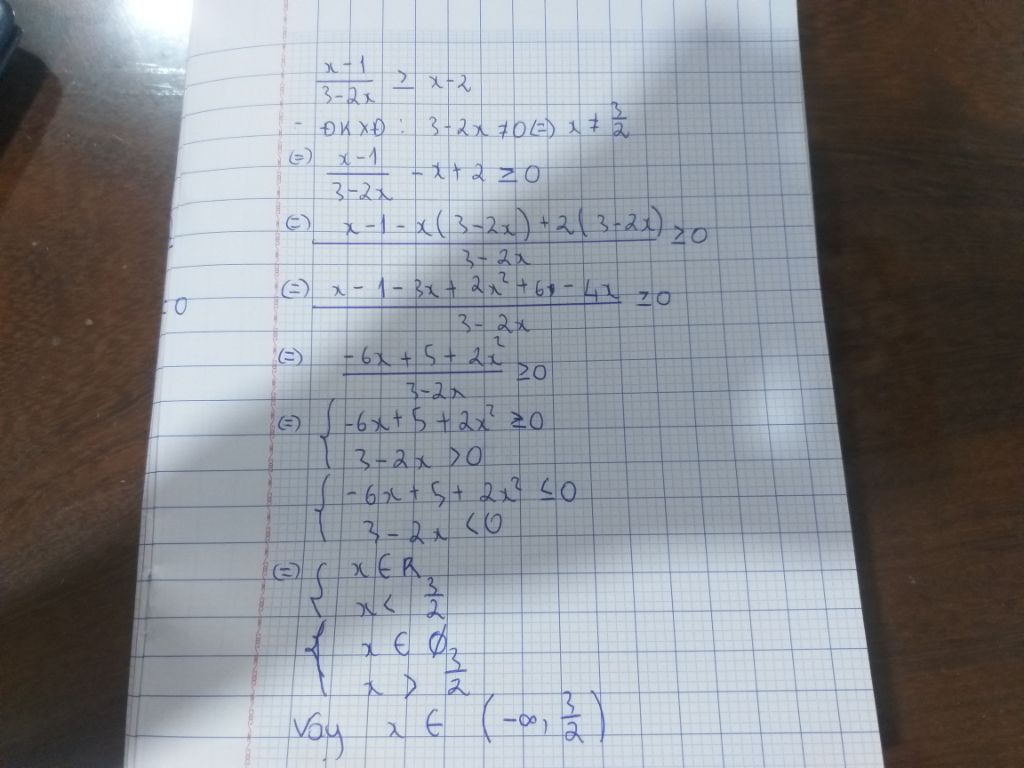 x-1/3-2x ≥ x-2
- ĐKXĐ : 3-2x ≠ 0 (=) x ≠ 3/2
(=) x-1/3-2x - x + 2 ≥ 0
(=) x-1-x(3-2x)+2(3-2x)/3-2x ≥ 0
:0
(=) x-1-3x+2x²+6-4x/3-2x ≥ 0
(=) -6x+5+2x²/3-2x ≥ 0
(=) { -6x+5+2x² ≥ 0
3-2x > 0
{ -6x+5+2x² ≤ 0
3-2x < 0
(=) { x ∈ R
x < 3/2
{ x ∈ Ø
x > 3/2
Vậy x ∈ (-∞, 3/2)